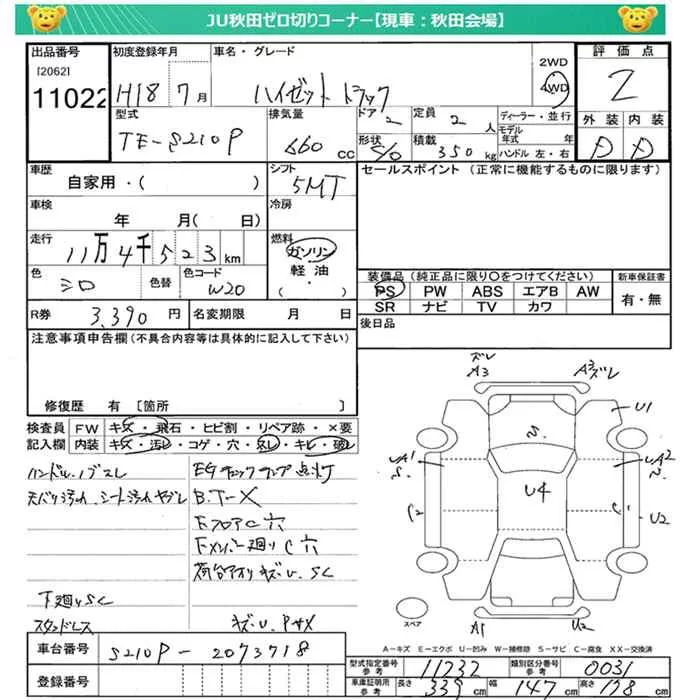 JU秋田ゼロ切りコーナー【現車：秋田会場】
出品番号 初度登録年月 車名・グレード 評価点
[2062]
11022 H18 7月 ハイゼット トラック 2WD 4WD 2
型式 排気量 ドア 2 定員 2人 ディーラー・並行 外装 内装
TE-S210P 660 CC 形状 積載 350kg モデル年式 年 D D
ハンドル 左・右
車歴 シフト セールスポイント (正常に機能するものに限ります)
自家用・( ) 5MT
車検 冷房
年 月( 日)
走行 燃料
11万4千523km ガソリン
色 色替 色コード 軽油
シロ W20 ・( )
装備品 (純正品に限り○をつけてください) 新車保証書
PS PW ABS エアB AW 有・無
SR ナビ TV カワ
R券 3,390円 名変期限 月 日 後日品
注意事項申告欄(不具合内容等は具体的に記入して下さい)
修復歴 有 [箇所 ]
検査員 FW キズ・飛石・ヒビ割・リペア跡・×要
記入欄 内装 キズ・汚レ・コゲ・穴・スレ・キレ・破レ
ハンドル.ノブスレ EGチェックランプ点灯
天バリ汚れ.シート汚れヤブレ B.T-X
FフロアC穴
Fメンバー廻りC穴
荷台アオリキズU.SC
下廻りSC
スタッドレス キズU.PキX
ズレ A3 A3ズレ
U1
UA1 S. UA2
U4
C2 C U2
スペア A1 U2
A-キズ E-エクボ U-凹み W-補修跡 S-サビ C-腐食 XX-交換済
車台番号 S210P-2073718
登録番号
型式指定番号 参考 11232 類別区分番号 参考 0031
車庫証明用 参考 長さ 339cm 幅 147cm 高さ 178cm